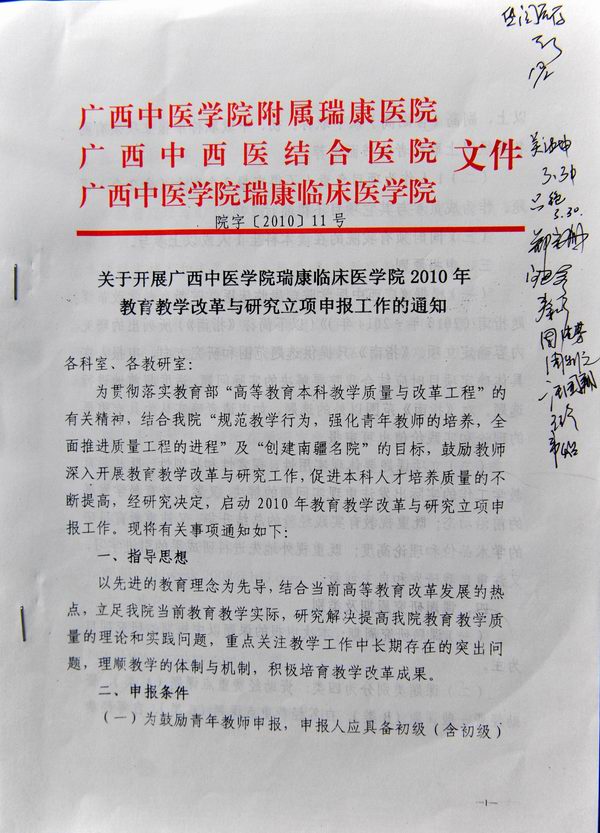 广西中医学院附属瑞康医院
广西中西医结合医院 文件
广西中医学院瑞康临床医学院
院字〔2010〕11号
关于开展广西中医学院瑞康临床医学院 2010 年
教育教学改革与研究立项申报工作的通知
各科室、各教研室：
为贯彻落实教育部“高等教育本科教学质量与改革工程”的
有关精神，结合我院“规范教学行为，强化青年教师的培养，全
面推进质量工程的进程”及“创建南疆名院”的目标，鼓励教师
深入开展教育教学改革与研究工作，促进本科人才培养质量的不
断提高，经研究决定，启动 2010 年教育教学改革与研究立项申
报工作。现将有关事项通知如下：
一、指导思想
以先进的教育理念为先导，结合当前高等教育改革发展的热
点，立足我院当前教育教学实际，研究解决提高我院教育教学质
量的理论和实践问题，重点关注教学工作中长期存在的突出问
题，理顺教学的体制与机制，积极培育教学改革成果。
二、申报条件
（一）为鼓励青年教师申报，申报人应具备初级（含初级）
—1—
3.30.